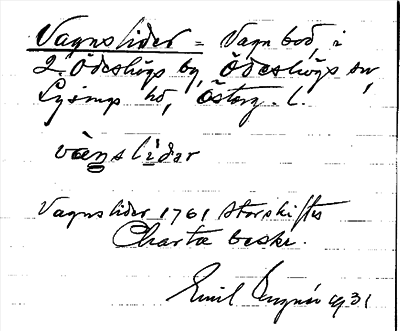 Vagnslider = Vagnbod, i
2. Ödeshögs by, Ödeshögs sn,
Lysings hd, Österg. l.
vängslidar
Vagnslider 1761 Storskiftes
Charta beskr.
Emil 1931